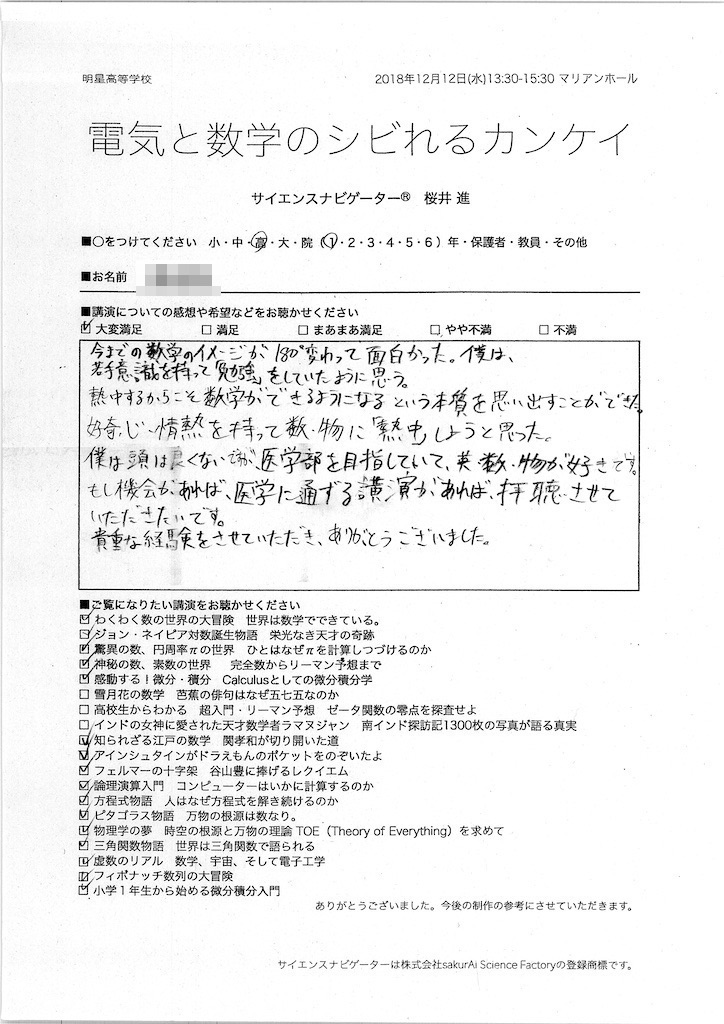 明星高等学校
2018年12月12日(水)13:30-15:30 マリアンホール
電気と数学のシビれるカンケイ
サイエンスナビゲーター® 桜井 進
■○をつけてください 小・中・高・大・院（1・2・3・4・5・6）年・保護者・教員・その他
■お名前
■講演についての感想や希望などをお聴かせください
☑ 大変満足 □ 満足 □ まあまあ満足 □ やや不満 □ 不満
今までの数学のイメージが180°変わって面白かった。僕は、
苦手意識を持って「勉強」をしていたように思う。
熱中するからこそ数学ができるようになるという本質を思い出すことができた。
好奇心・情熱を持って数・物に「熱中」しようと思った。
僕は頭は良くないですが、医学部を目指していて、英・数・物が好きです。
もし機会があれば、医学に通ずる講演があれば、拝聴させて
いただきたいです。
貴重な経験をさせていただき、ありがとうございました。
■ご覧になりたい講演をお聴かせください
☑ わくわく数の世界の大冒険 世界は数学でできている。
☑ ジョン・ネイピア対数誕生物語 栄光なき天才の奇跡
☑ 驚異の数、円周率πの世界 ひとはなぜπを計算しつづけるのか
☑ 神秘の数、素数の世界 完全数からリーマン予想まで
☑ 感動する！微分・積分 Calculusとしての微分積分学
□ 雪月花の数学 芭蕉の俳句はなぜ五七五なのか
□ 高校生からわかる 超入門・リーマン予想 ゼータ関数の零点を探査せよ
□ インドの女神に愛された天才数学者ラマヌジャン 南インド探訪記1300枚の写真が語る真実
☑ 知られざる江戸の数学 関孝和が切り開いた道
☑ アインシュタインがドラえもんのポケットをのぞいたよ
☑ フェルマーの十字架 谷山豊に捧げるレクイエム
☑ 論理演算入門 コンピューターはいかに計算するのか
☑ 方程式物語 人はなぜ方程式を解き続けるのか
☑ ピタゴラス物語 万物の根源は数なり。
☑ 物理学の夢 時空の根源と万物の理論 TOE（Theory of Everything）を求めて
☑ 三角関数物語 世界は三角関数で語られる
☑ 虚数のリアル 数学、宇宙、そして電子工学
☑ フィボナッチ数列の大冒険
☑ 小学1年生から始める微分積分入門
ありがとうございました。今後の制作の参考にさせていただきます。
サイエンスナビゲーターは株式会社sakurAi Science Factoryの登録商標です。